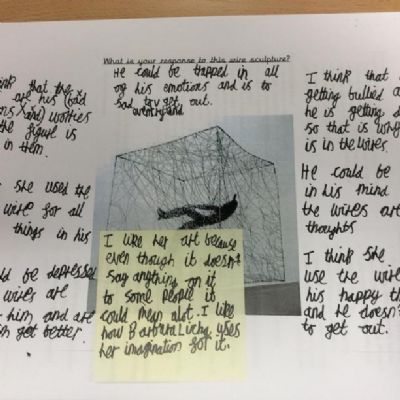 What is your response to this wire sculpture?
He could be trapped in all
of his emotions and is to
sad to try and get out.
think that the
are his (bad
worries
the figure is
in them.
she used the
wire for all
things in his
be depressed
wires are
him and are
get better.
I like her art because
even though it doesn't
say anything on it
to some people it
could mean alot. I like
how Barbara Licha uses
her imagination for it.
I think that
getting bullied
he is getting
so that is why
is in the wires.
He could be
in his mind
the wires are
thoughts
I think she
use the wire
his happy
and he doesn't
to get out.